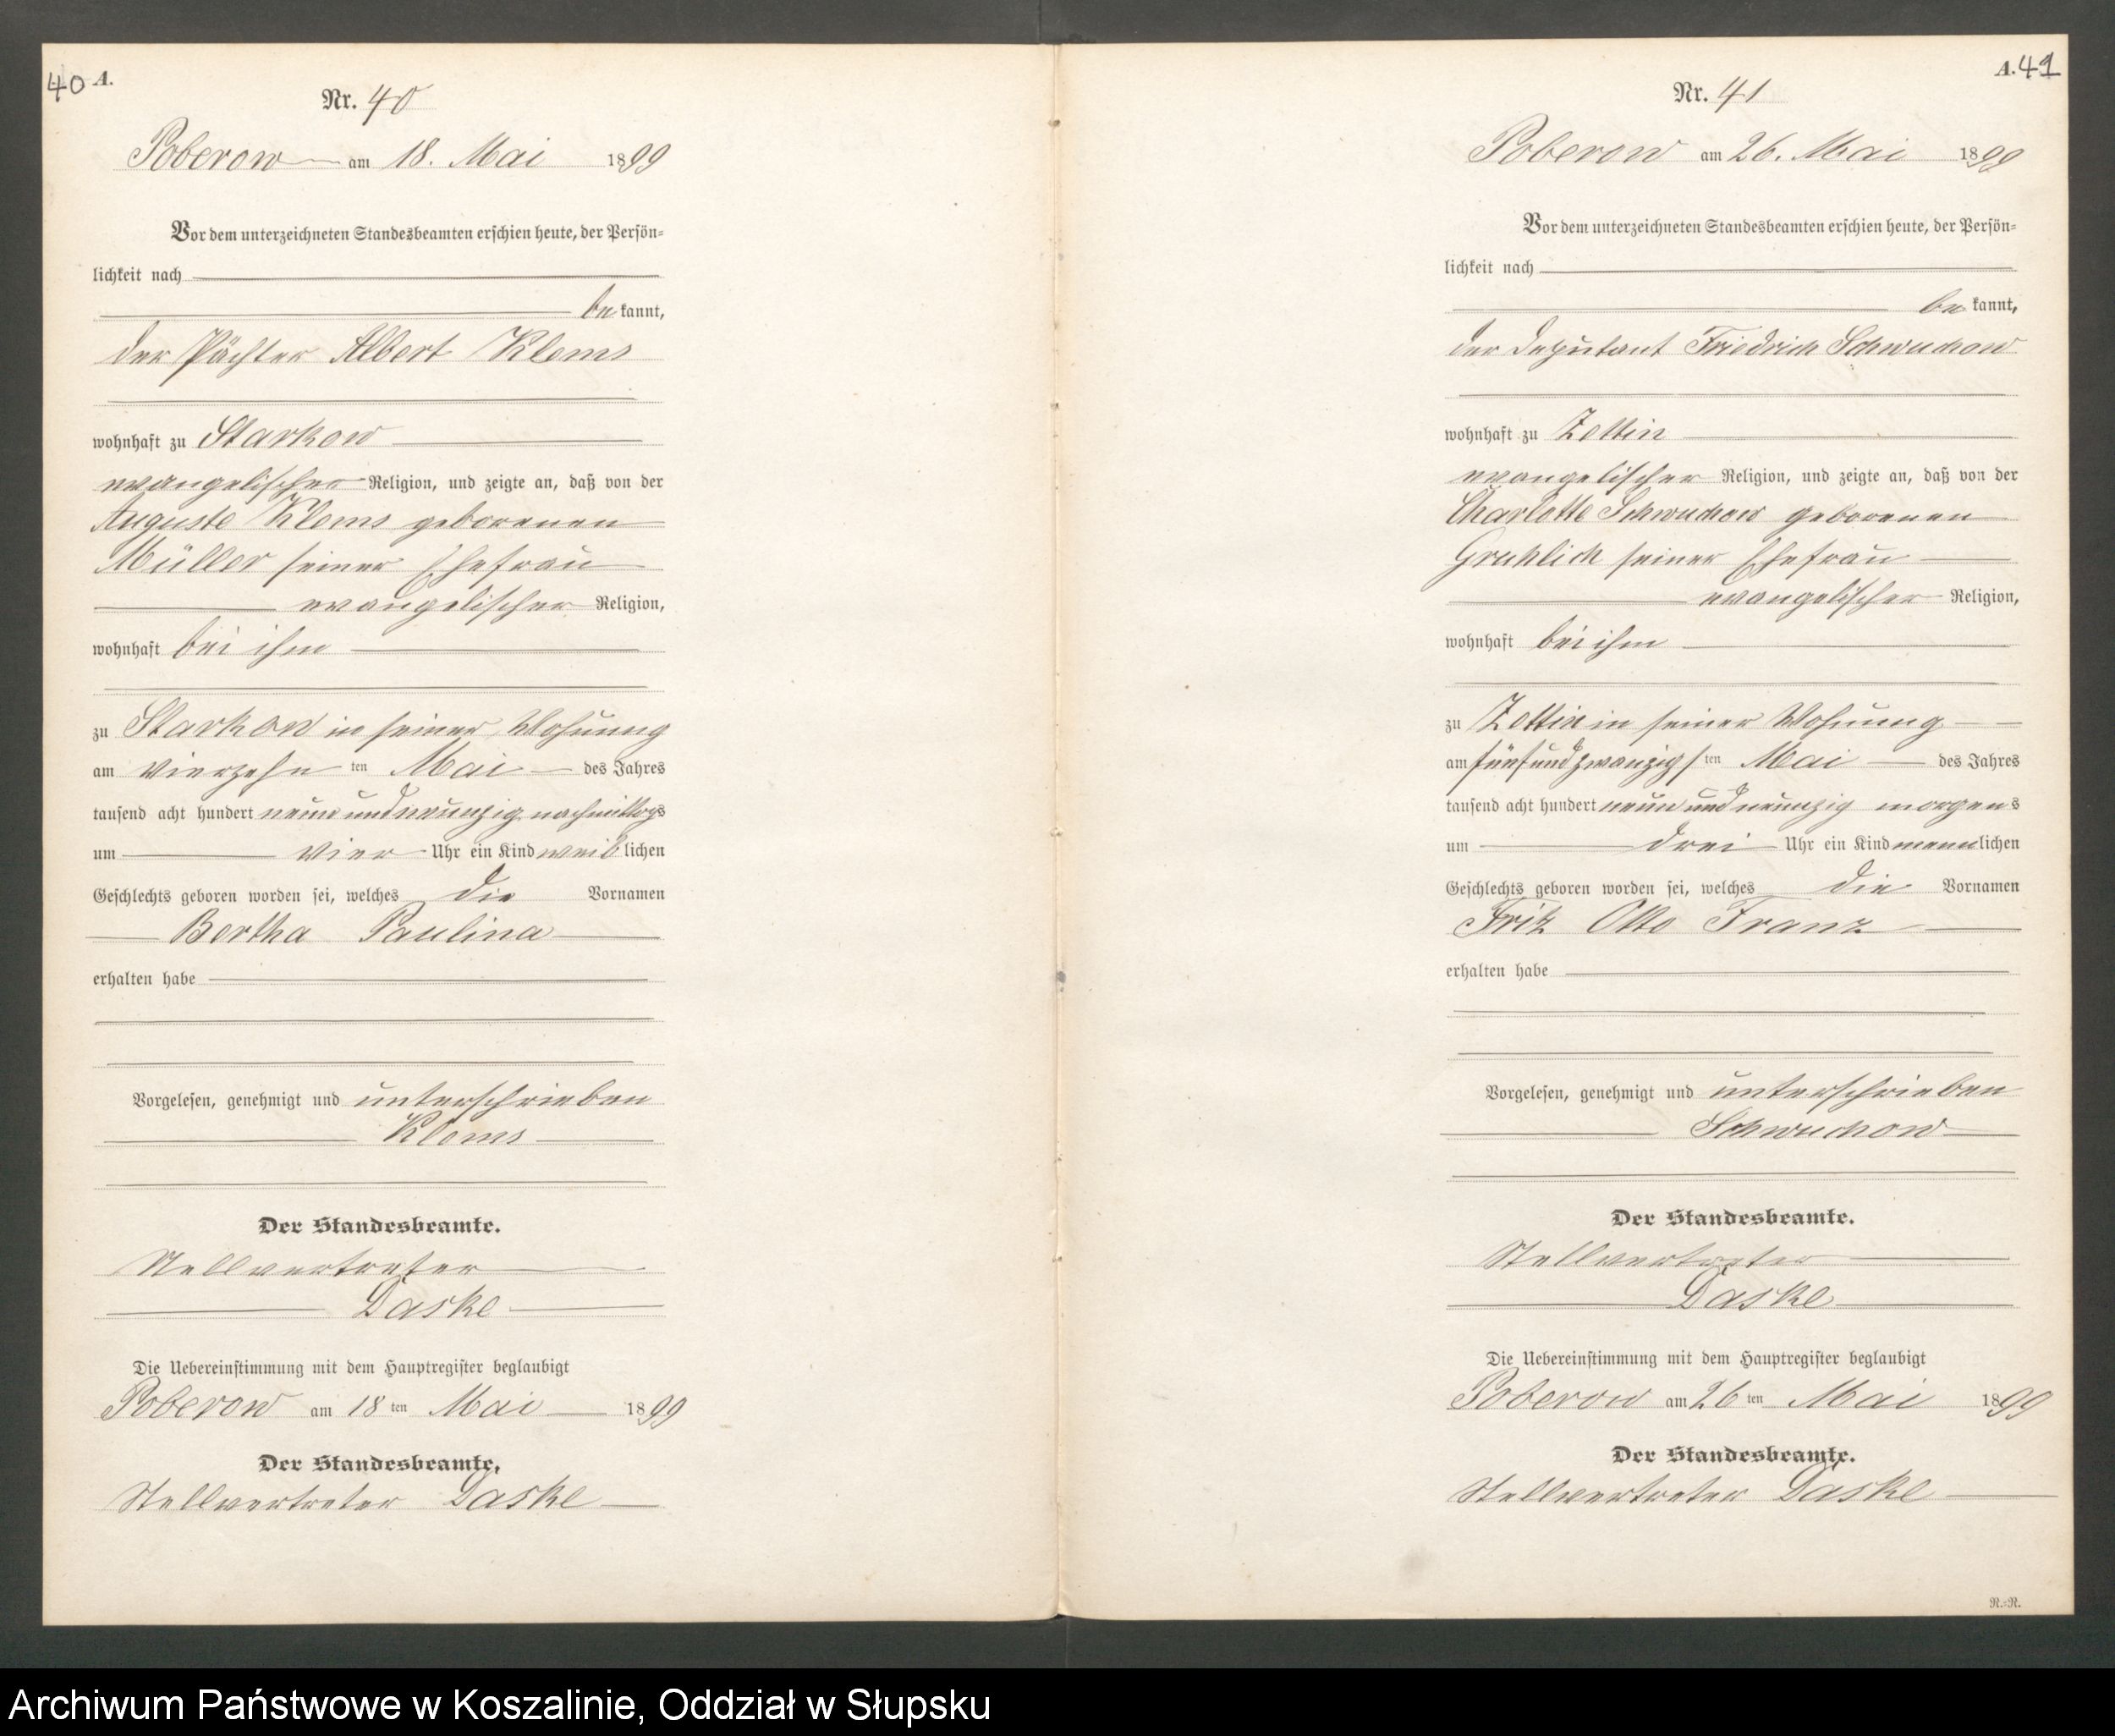 40 A.
Nr. 40
Poberow am 18. Mai 1899
Vor dem unterzeichneten Standesbeamten erschien heute, der Persön-
lichkeit nach
be kannt,
der Pächter Albert Klems
wohnhaft zu Starkow
evangelischer Religion, und zeigte an, daß von der
Auguste Klems geborenen
Müller seiner Ehefrau
evangelischer Religion,
wohnhaft bei ihm
zu Starkow in seiner Wohnung
am vierzehn ten Mai des Jahres
tausend acht hundert neun und neunzig nachmittags
um vier Uhr ein Kind weib lichen
Geschlechts geboren worden sei, welches die Vornamen
Bertha Paulina
erhalten habe
Vorgelesen, genehmigt und unterschrieben
Klems
Der Standesbeamte.
Stellvertreter
Daske
Die Uebereinstimmung mit dem Hauptregister beglaubigt
Poberow am 18 ten Mai 1899
Der Standesbeamte.
Stellvertreter Daske
A. 41
Nr. 41
Poberow am 26. Mai 1899
Vor dem unterzeichneten Standesbeamten erschien heute, der Persön-
lichkeit nach
be kannt,
der Deputant Friedrich Schwuchow
wohnhaft zu Zettin
evangelischer Religion, und zeigte an, daß von der
Charlotte Schwuchow geborenen
Gruhlich seiner Ehefrau
evangelischer Religion,
wohnhaft bei ihm
zu Zettin in seiner Wohnung
am fünfundzwanzigs ten Mai des Jahres
tausend acht hundert neun und neunzig morgens
um drei Uhr ein Kind männ lichen
Geschlechts geboren worden sei, welches die Vornamen
Fritz Otto Franz
erhalten habe
Vorgelesen, genehmigt und unterschrieben
Schwuchow
Der Standesbeamte.
Stellvertreter
Daske
Die Uebereinstimmung mit dem Hauptregister beglaubigt
Poberow am 26 ten Mai 1899
Der Standesbeamte.
Stellvertreter Daske
R.=R.
Archiwum Państwowe w Koszalinie, Oddział w Słupsku